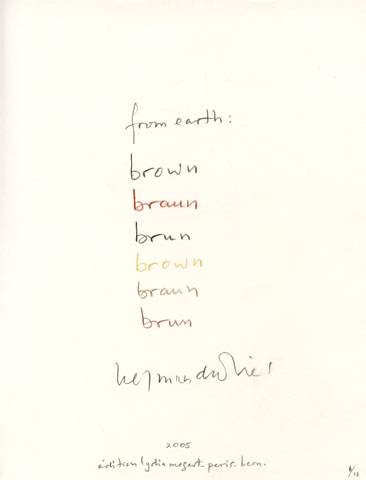 from earth:
brown
braun
brun
brown
braun
brun
herman de vries
2005
édition lydia megert. paris. bern.